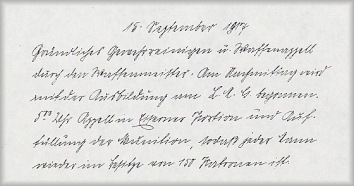 15. September 1917
Gründliches Gewehrreinigen u. Waffenappell
durch den Waffenmeister. Am Nachmittag wird
mit der Ausbildung am L. M. G. begonnen.
5⁰⁰ Uhr Appell in Eiserner Portion und Auf-
füllung der Munition, sodaß jeder Mann
wieder im Besitze von 150 Patronen ist.